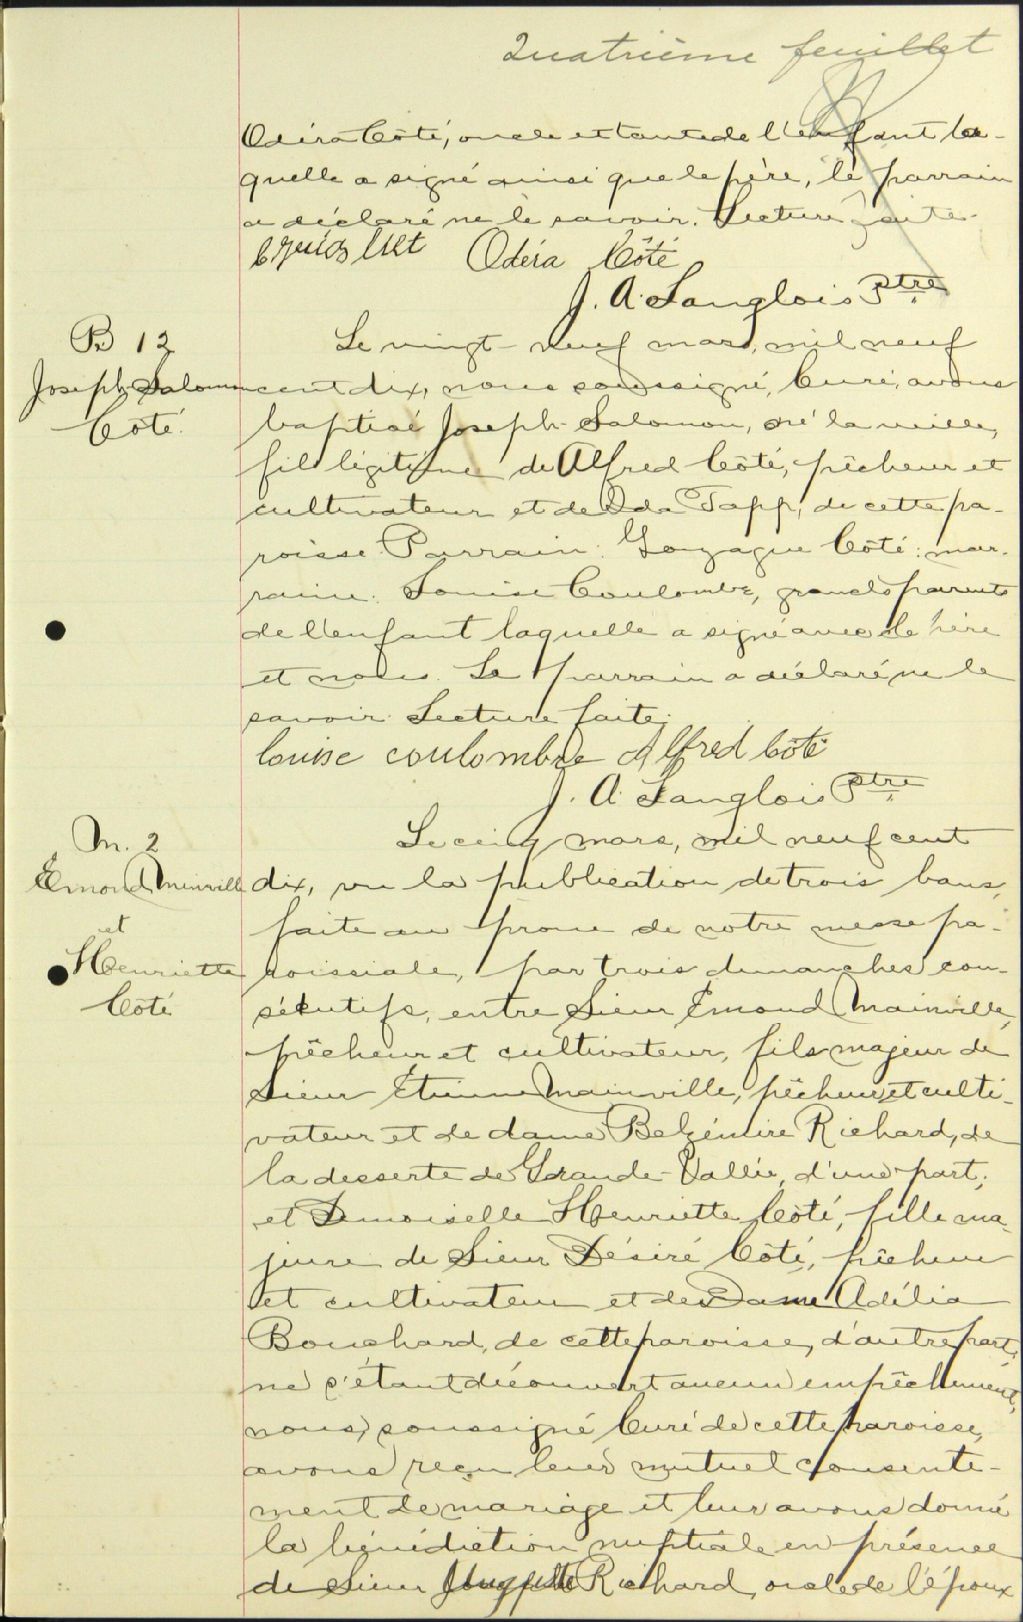 Quatrième feuillet
Odéra Côté, oncle et tante de l'enfant la-
quelle a signé ainsi que le père, le parrain
a déclaré ne le savoir. Lecture faite.
Odéra Côté
J. A. Langlois Ptre
B 12
Joseph-Salomon
Côté.
Le vingt-neuf mars, mil neuf
cent dix, nous soussigné, Curé, avons
baptisé Joseph-Salomon, né la veille,
fils légitime de Alfred Côté, pêcheur et
cultivateur et de Ida Tapp, de cette pa-
roisse. Parrain: Gonzague Côté; mar-
raine: Louise Coulombe, grands parents
de l'enfant laquelle a signé avec le père
et nous. Le parrain a déclaré ne le
savoir. Lecture faite.
louise coulombre Alfred Côté
J. A. Langlois Ptre
M. 2
Émond Minville
et
Henriette
Côté
Le cinq mars, mil neuf cent
dix, vu la publication de trois bans,
faite au prone de notre messe pa-
roissiale, par trois dimanches con-
sécutifs, entre Sieur Émond Mainville,
pêcheur et cultivateur, fils majeur de
Sieur Étienne Mainville, pêcheur et culti-
vateur et de dame Belzémire Richard, de
la desserte de Grande-Vallée, d'une part;
et Demoiselle Henriette Côté, fille ma-
jeure de Sieur Désiré Côté, pêcheur
et cultivateur et de Dame Adélia
Bouchard, de cette paroisse, d'autre part,
ne s'étant découvert aucun empêchement,
nous, soussigné Curé de cette paroisse,
avons reçu leur mutuel consente-
ment de mariage et leur avons donné
la bénédiction nuptiale en présence
de Sieur Auguste Richard, oncle de l'époux